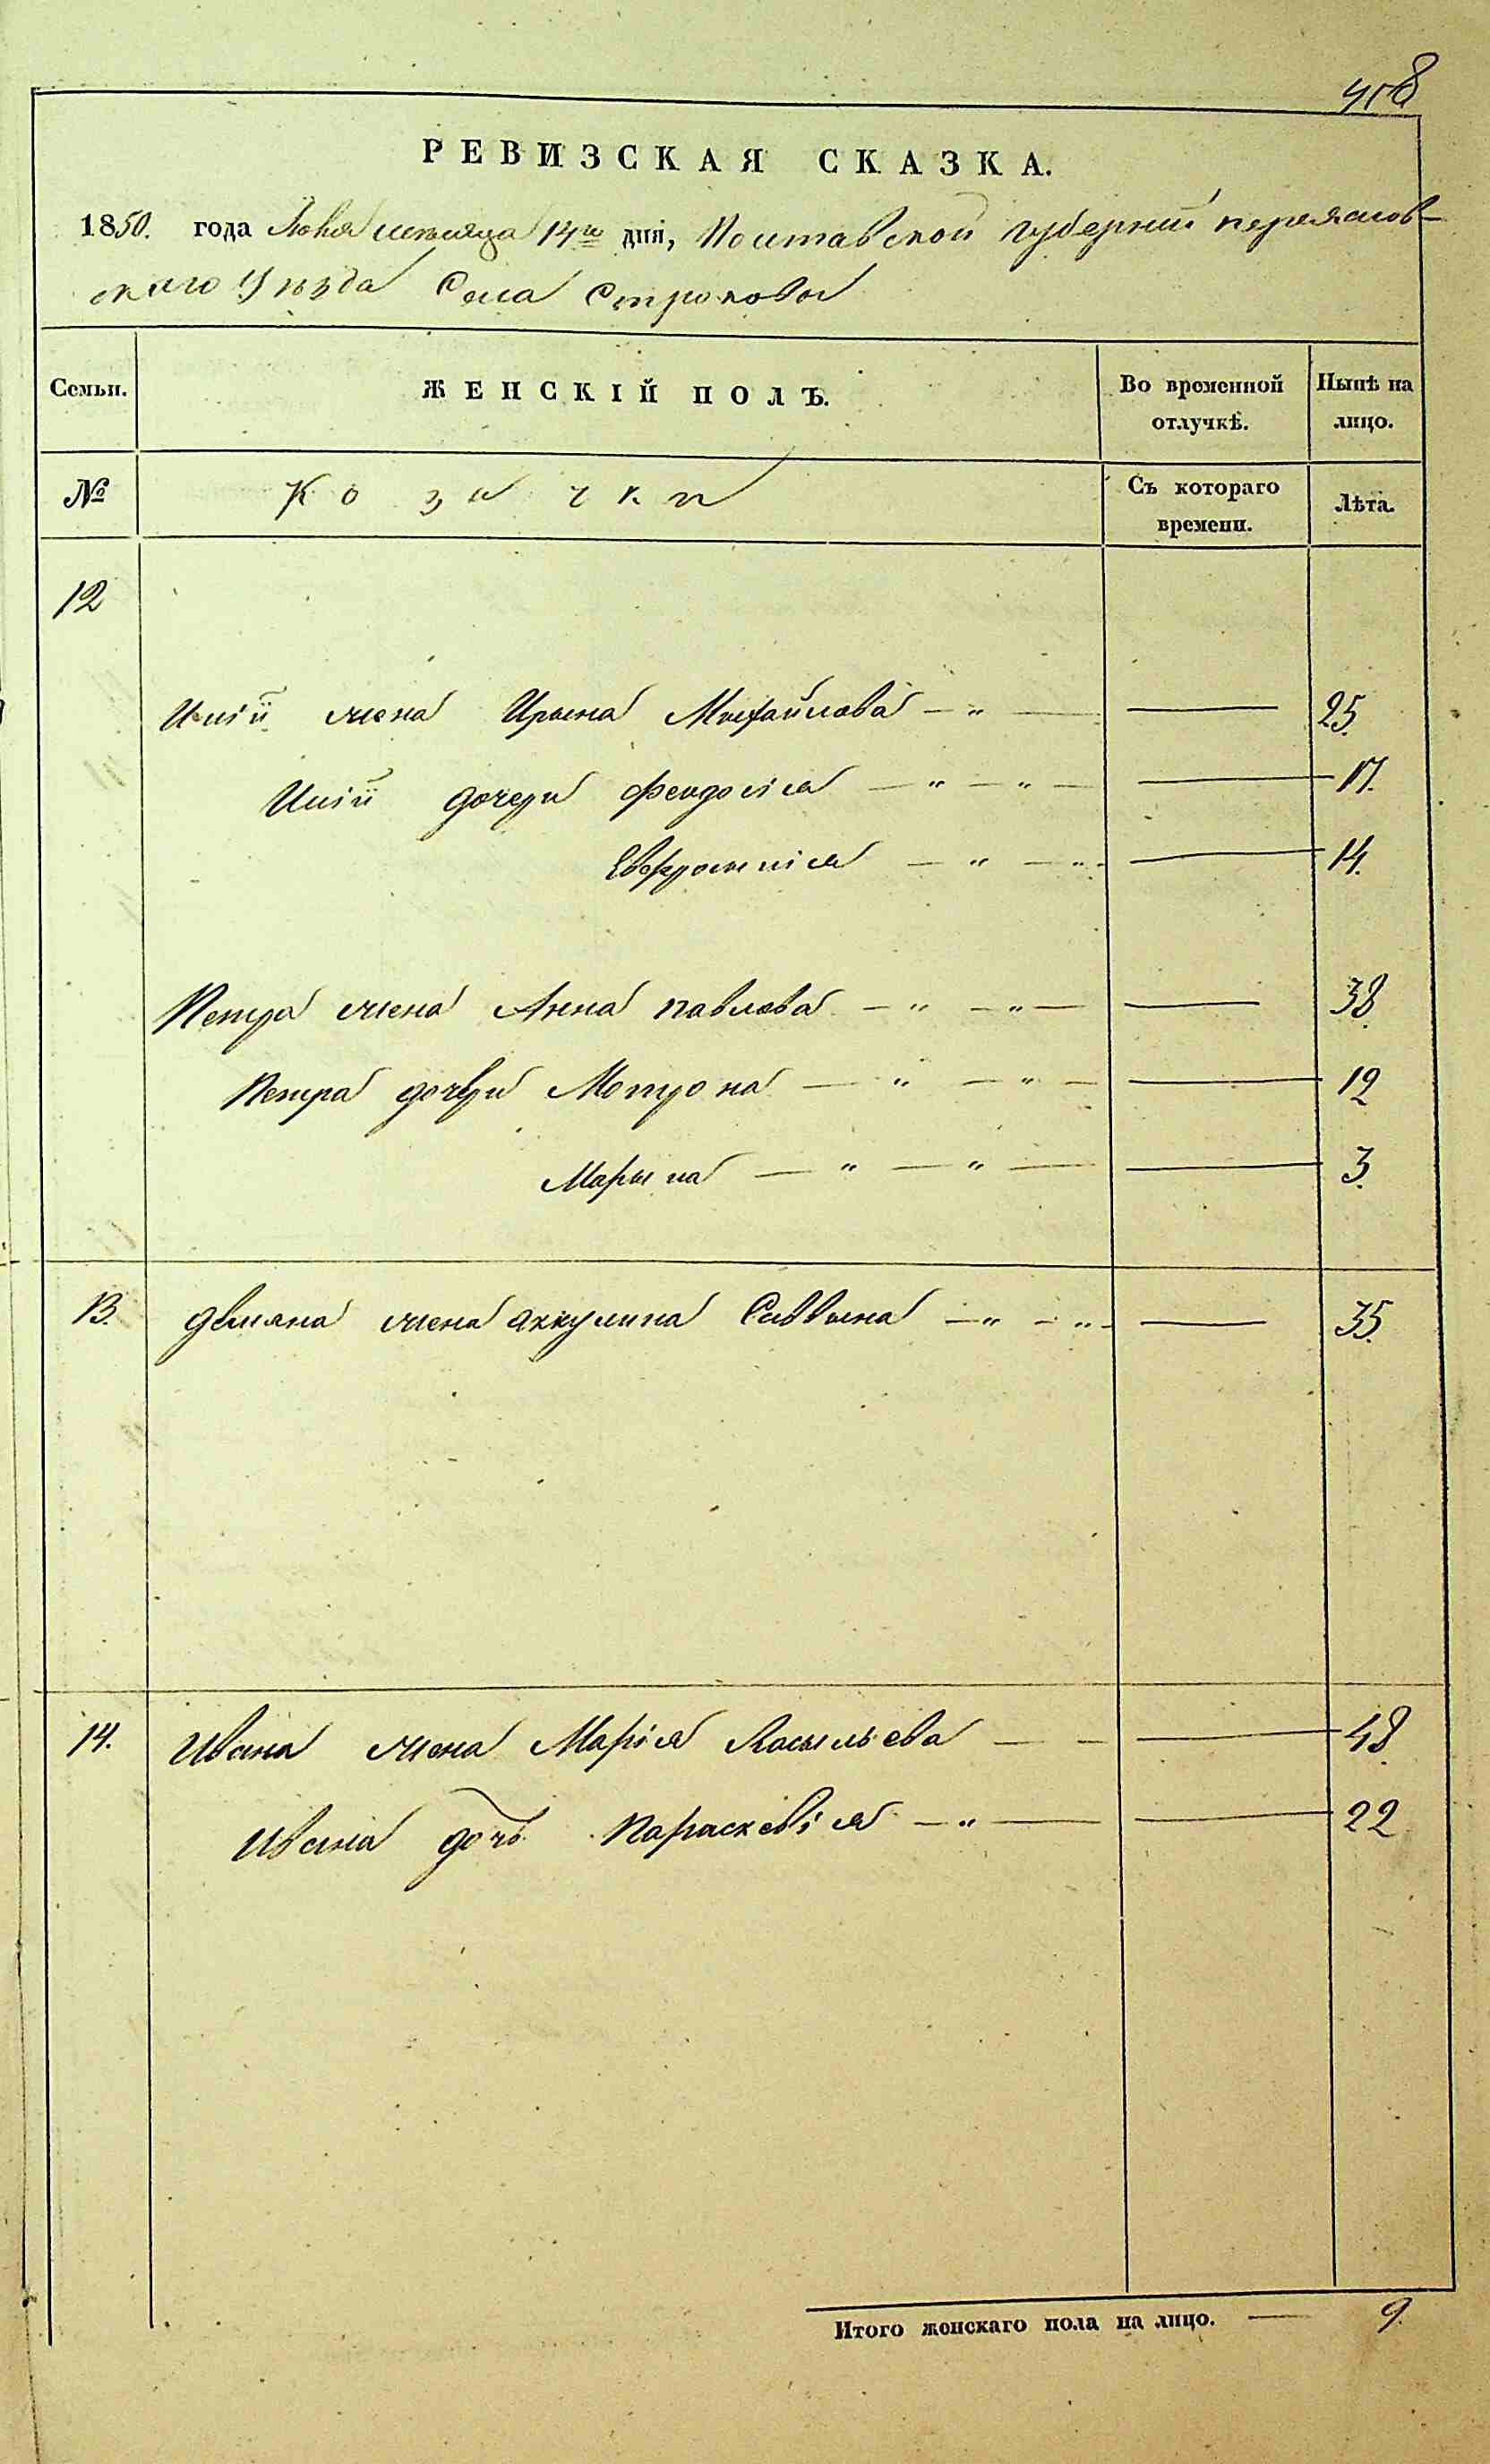 408
РЕВИЗСКАЯ СКАЗКА.
1850. года Июня месяца 14го дня, Полтавской губерний переяслов-
скаго Уѣзда Села Строкова
Семьи. ЖЕНСКІЙ ПОЛЪ. Во временной отлучкѣ. Нынѣ на лицо.
№ Козачки Съ котораго времени. Лѣта.
12
Иліи жена Ирына Михайлова — " — — 25.
Иліи дочери Феодосія — " — " — — 17.
Евфросинія — " — " — — 14.
Петра жена Анна павлова — " — " — — 38.
Петра дочери Мотрона — " — " — — 12
Марына — " — " — — 3.
13. демяна жена Аккулина Саввына — " — " — — 35.
14. Ивана жена Марія Васыльева — — — 48.
Ивана дочь Параскевія — " — — 22
Итого женскаго пола на лицо. — 9.